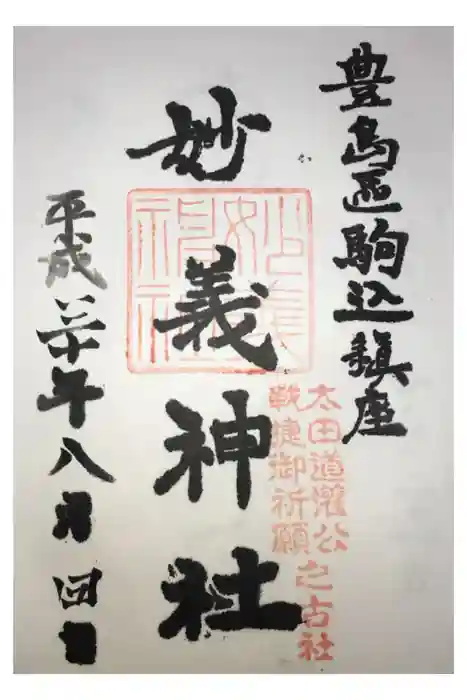 豊島区駒込鎮座
太田道灌公
戦捷御祈願
之古社
妙義神社
妙義神社
平成三十年八月四日